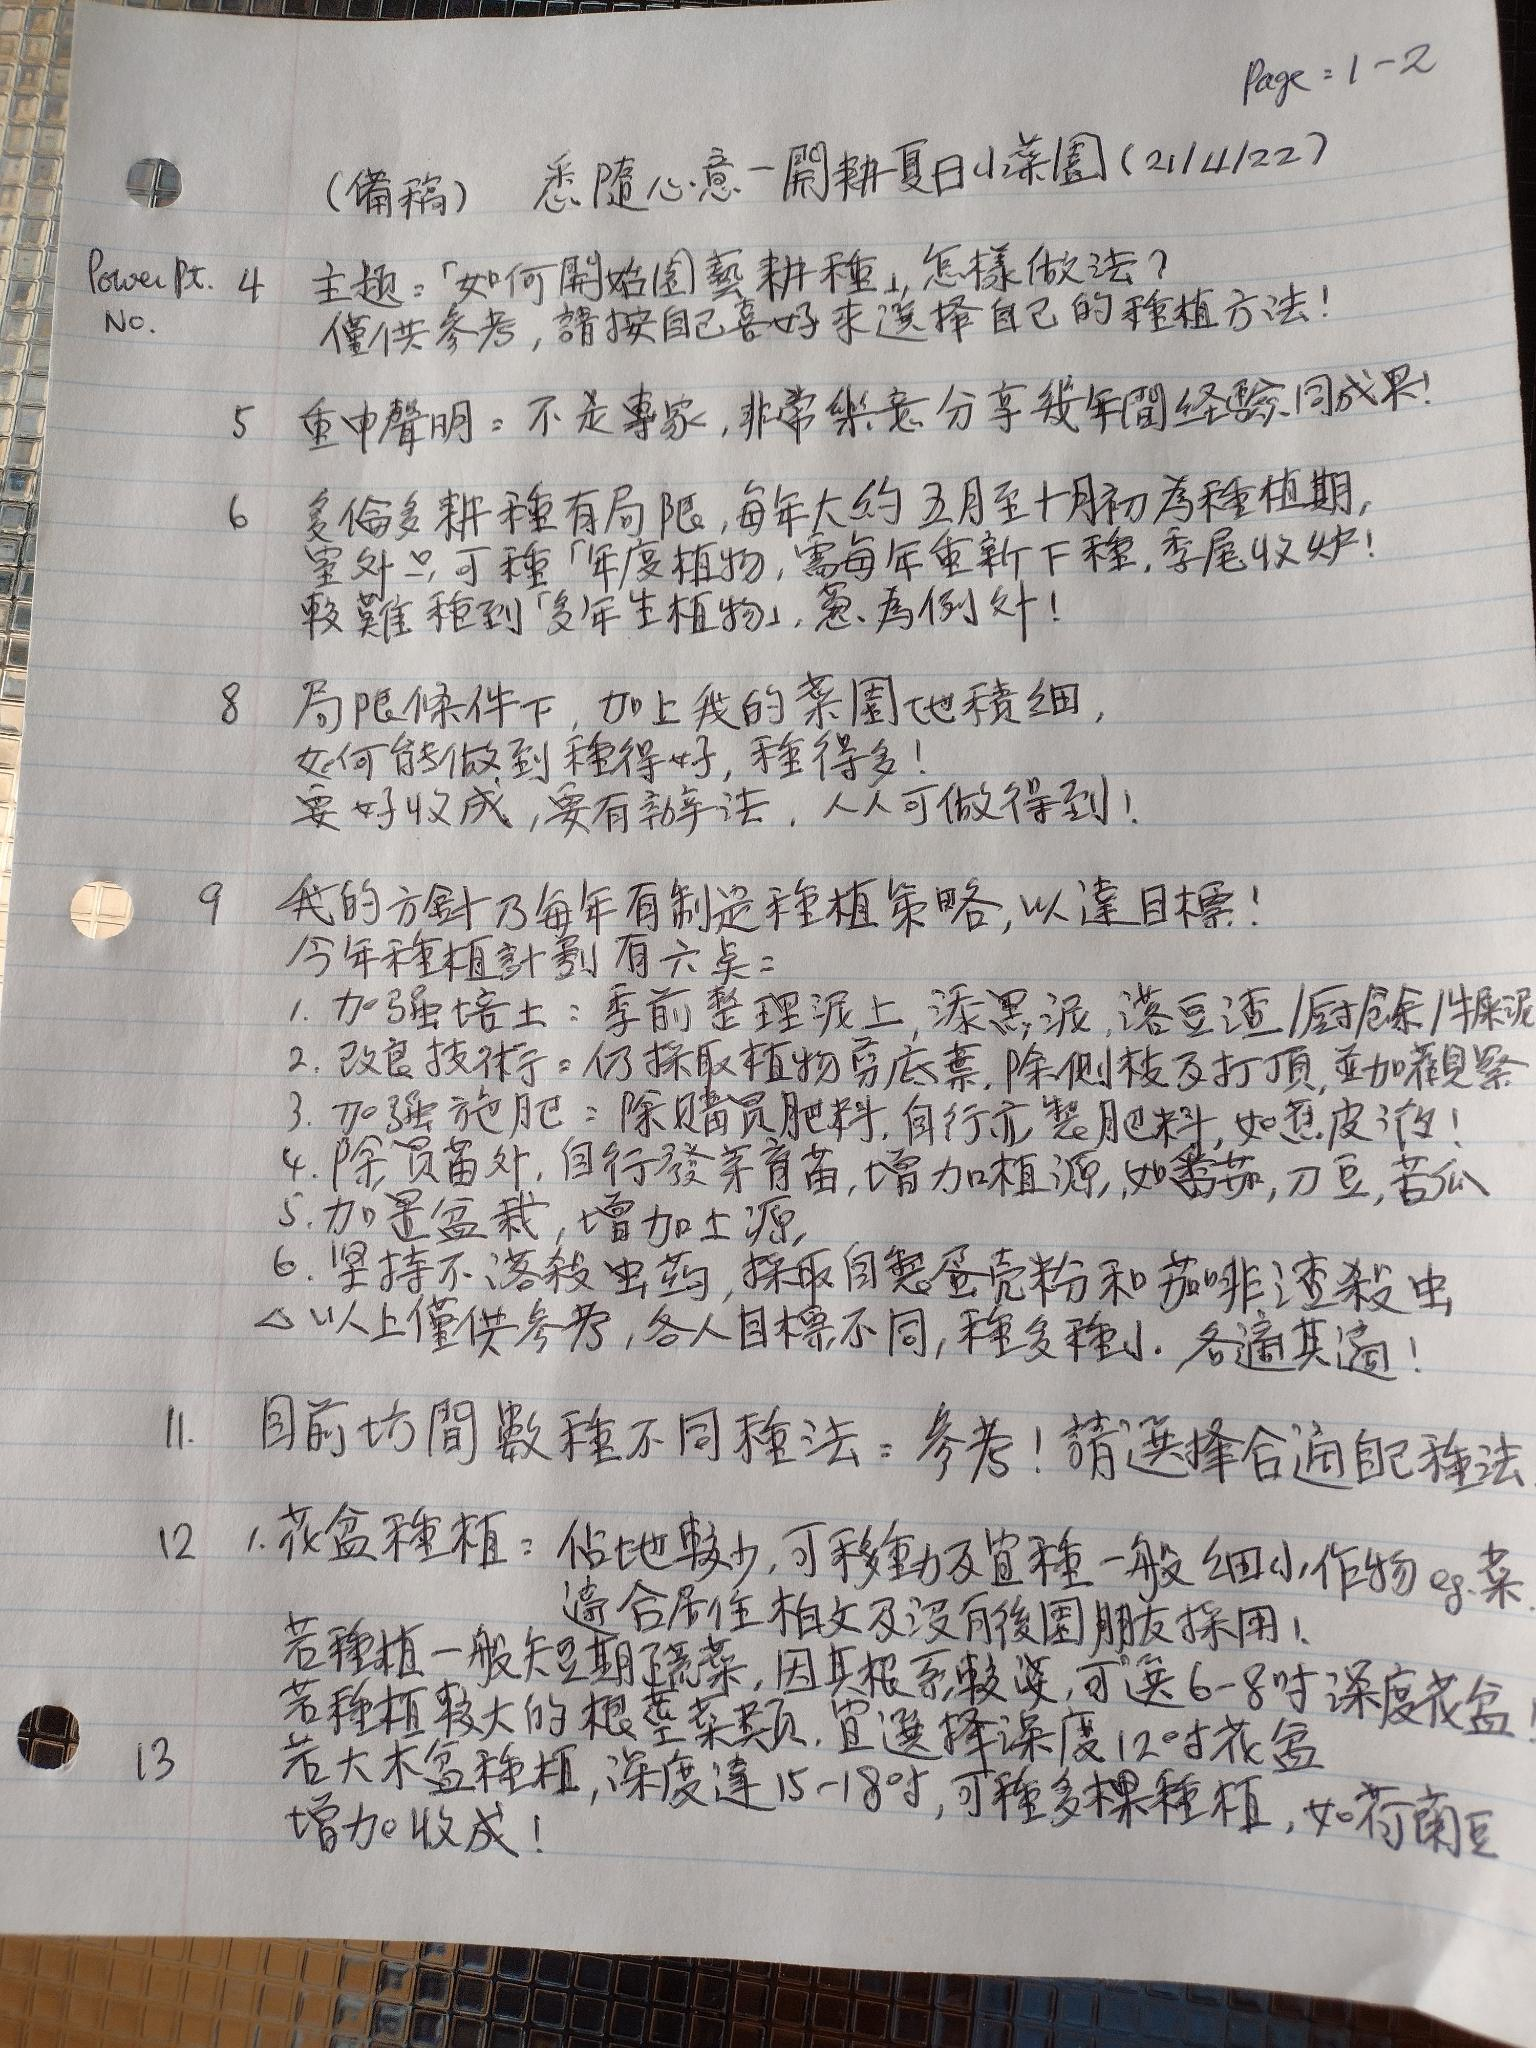 Page = 1-2
(備稿) 悉隨心意-開耕夏日小菜園 (21/4/22)
Power Pt. 4 主題：「如何開始園藝耕種」, 怎樣做法?
No. 僅供參考, 請按自己喜好來選擇自己的種植方法!
5 重申聲明：不是專家, 非常樂意分享幾年間経驗同成果!
6 多倫多耕種有局限, 每年大約五月至十月初為種植期,
室外只可種「年度植物, 需每年重新下種, 季尾收炉!
較難種到「多年生植物」, 葱為例外!
8 局限條件下, 加上我的菜園地積細,
如何能做到種得好, 種得多!
要好收成, 要有辦法, 人人可做得到!
9 我的方針乃每年有制定種植策略, 以達目標!
今年種植計劃有六点：
1. 加强培土：季前整理泥土, 添黑泥, 落豆渣/厨余/牛屎泥
2. 改良技術：仍採取植物剪底葉, 除側枝及打頂, 並加觀察
3. 加强施肥：除購買肥料, 自行亦製肥料, 如蕉皮液!
4. 除買苗外, 自行發芽育苗, 增加植源, 如番茄, 刀豆, 苦瓜
5. 加置盆栽, 增加土源,
6. 坚持不落殺虫药, 採取自製蛋壳粉和咖啡渣殺虫
△ 以上僅供參考, 各人目標不同, 種多種小. 各適其適!
11. 目前坊間數種不同種法：參考! 請選擇合適自己種法.
12 1. 花盆種植：佔地較少, 可移動及宜種一般細小作物 eg. 菜.
適合居住柏文及没有後園朋友採用!
若種植一般短期蔬菜, 因其根系較淺, 可選6-8吋深度花盆!
若種植較大的根莖菜類, 宜選擇深度12吋花盆
13 若大木盆種植, 深度達15-18吋, 可種多棵種植, 如荷蘭豆
增加收成!